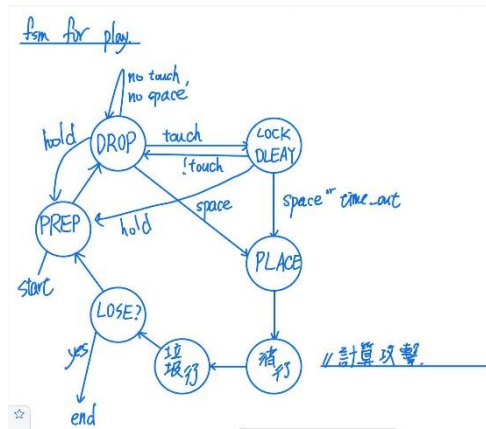 fsm for play.
no touch,
no space
hold
DROP
touch
LOCK
DLEAY
!touch
space
space or time_out
PREP
hold
start
PLACE
LOSE?
yes
垃
圾行
消
行
//計算攻擊.
end